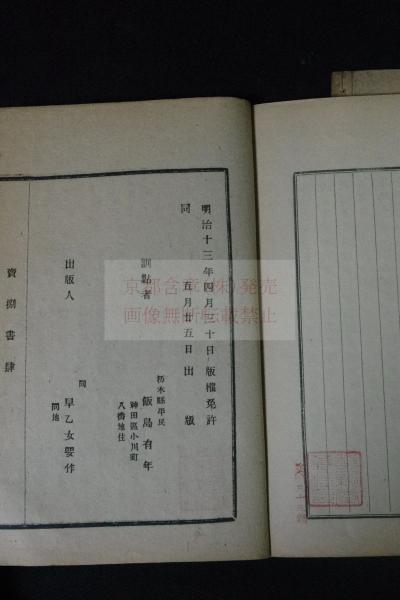 明治十三年四月三十日版權免許
同　五月廿五日出版
訓點者
栃木縣平民
飯島有年
神田區小川町
八番地住
出版人
同
早乙女要作
同地
賣捌書肆
京都含章(株)発売
画像無断転載禁止